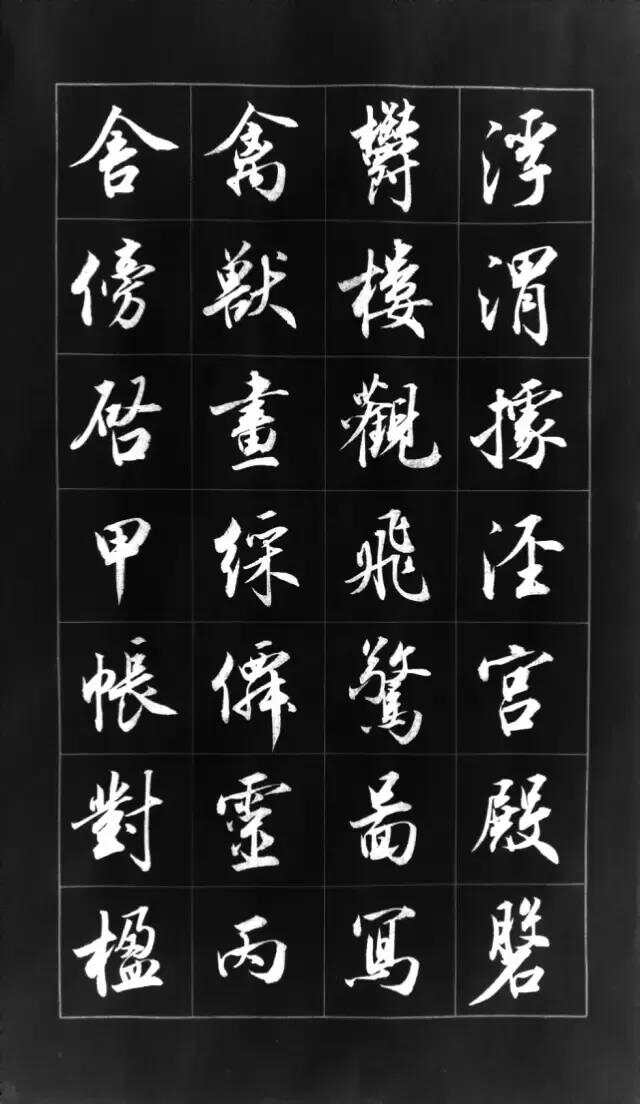 浮渭據涇宫殿磐
欝樓觀飛驚啚寫
禽獸畫綵僊靈丙
舍傍啓甲帳對楹